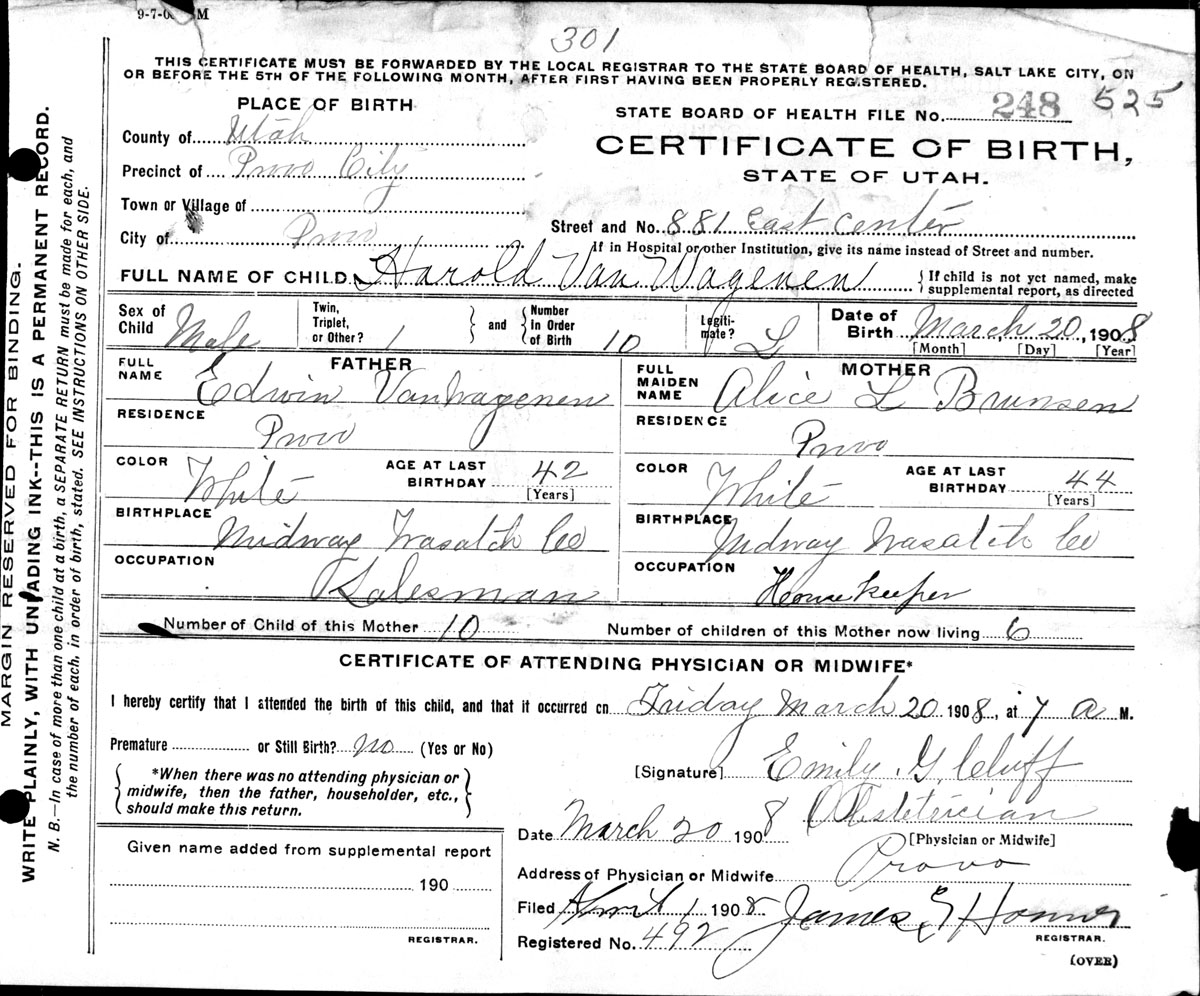 9-7-0 M
301
THIS CERTIFICATE MUST BE FORWARDED BY THE LOCAL REGISTRAR TO THE STATE BOARD OF HEALTH, SALT LAKE CITY, ON
OR BEFORE THE 5TH OF THE FOLLOWING MONTH, AFTER FIRST HAVING BEEN PROPERLY REGISTERED.
PLACE OF BIRTH
STATE BOARD OF HEALTH FILE No. 248 525
County of Utah
CERTIFICATE OF BIRTH,
STATE OF UTAH.
Precinct of Provo City
Town or Village of
City of Provo
Street and No. 881 East Center
If in Hospital or other Institution, give its name instead of Street and number.
FULL NAME OF CHILD Harold Van Wagenen { If child is not yet named, make
supplemental report, as directed
Sex of Child Male
Twin, Triplet, or Other? 1 } and { Number in Order of Birth 10
Legiti-mate? L
Date of Birth March, 20, 1908
[Month] [Day] [Year]
FATHER
FULL NAME Edwin VanWagenen
RESIDENCE Provo
COLOR White AGE AT LAST BIRTHDAY 42 [Years]
BIRTHPLACE Midway Wasatch Co
OCCUPATION Salesman
MOTHER
FULL MAIDEN NAME Alice L Brunsen
RESIDENCE Provo
COLOR White AGE AT LAST BIRTHDAY 44 [Years]
BIRTHPLACE Midway Wasatch Co
OCCUPATION House keeper
Number of Child of this Mother 10 Number of children of this Mother now living 6
CERTIFICATE OF ATTENDING PHYSICIAN OR MIDWIFE*
I hereby certify that I attended the birth of this child, and that it occurred on Friday March 20 1908, at 7 A M.
Premature or Still Birth? no (Yes or No)
{ *When there was no attending physician or
midwife, then the father, householder, etc.,
should make this return. }
[Signature] Emily G. Cluff
Obstetrician
Date March 20 1908 [Physician or Midwife]
Given name added from supplemental report
190
REGISTRAR.
Address of Physician or Midwife Provo
Filed April 1 1908 James E Homer
Registered No. 492 REGISTRAR.
(OVER)
MARGIN RESERVED FOR BINDING.
WRITE PLAINLY, WITH UNFADING INK--THIS IS A PERMANENT RECORD.
N. B.—In case of more than one child at a birth, a SEPARATE RETURN must be made for each, and
the number of each, in order of birth, stated. SEE INSTRUCTIONS ON OTHER SIDE.